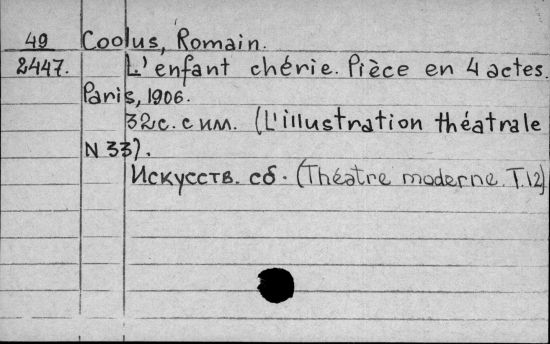 49 Coolus, Romain.
2447. L'enfant chérie. Pièce en 4 actes.
Paris, 1906.
32 с. с илл. (L'illustration théatrale
N 33).
Искусств. сб. (Théatre moderne. T.12)